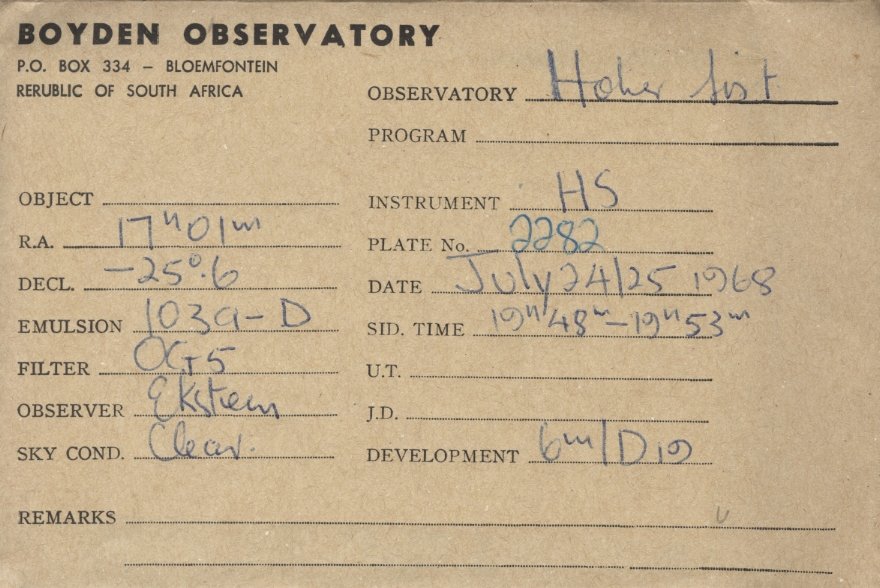 BOYDEN OBSERVATORY
P.O. BOX 334 – BLOEMFONTEIN
RERUBLIC OF SOUTH AFRICA
OBSERVATORY Hoher List
PROGRAM
OBJECT
INSTRUMENT HS
R.A. 17ʰ01ᵐ
PLATE No. 2282
DECL. -25°.6
DATE July 24/25 1968
EMULSION 103a-D
SID. TIME 19ʰ48ᵐ-19ʰ53ᵐ
FILTER OG5
U.T.
OBSERVER Eksteen
J.D.
SKY COND. Clear.
DEVELOPMENT 6ᵐ/D19
REMARKS